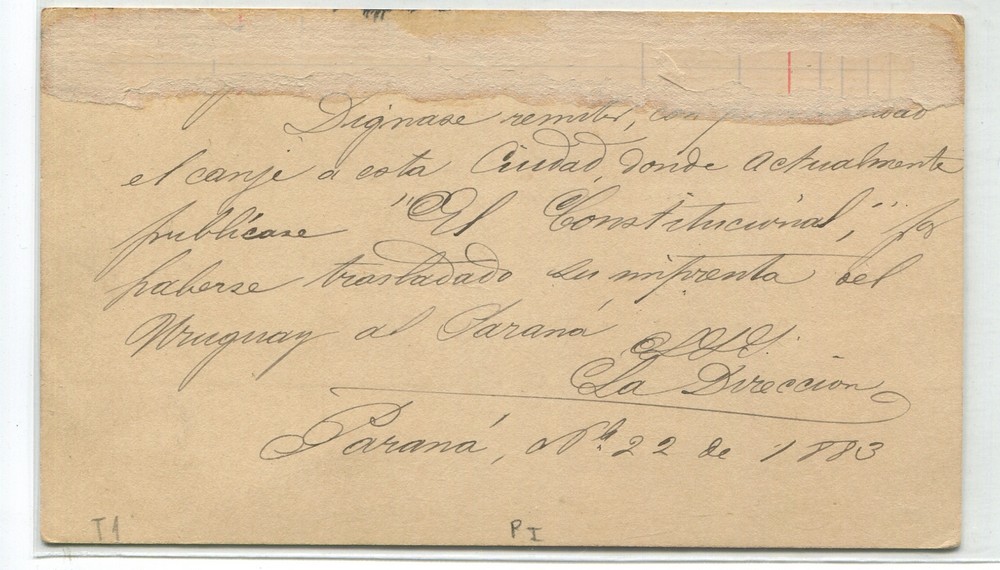 Dígnase remitir,
el canje a esta Ciudad, donde actualmente
publícase "El Constitucional," por
haberse trasladado su imprenta del
Uruguay al Paraná
S.S.S.
La Dirección
Paraná, Nbe. 22 de 1883
T1 PI